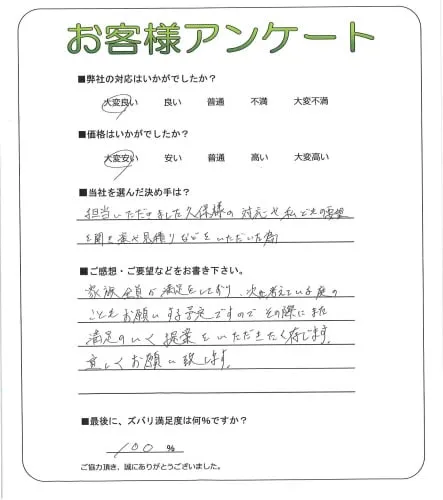 お客様アンケート
■弊社の対応はいかがでしたか？
大変良い 良い 普通 不満 大変不満
■価格はいかがでしたか？
大変安い 安い 普通 高い 大変高い
■当社を選んだ決め手は？
担当いただけました久保様の対応や私どもの要望
を聞き 見積りなどをいただいた為
■ご感想・ご要望などをお書き下さい。
家族全員が満足をしており、次に考えている庭の
こともお願いする予定ですのでその際にまた
満足のいく提案をいただきたく存じます。
宜しくお願い致します。
■最後に、ズバリ満足度は何％ですか？
100 %
ご協力頂き、誠にありがとうございました。